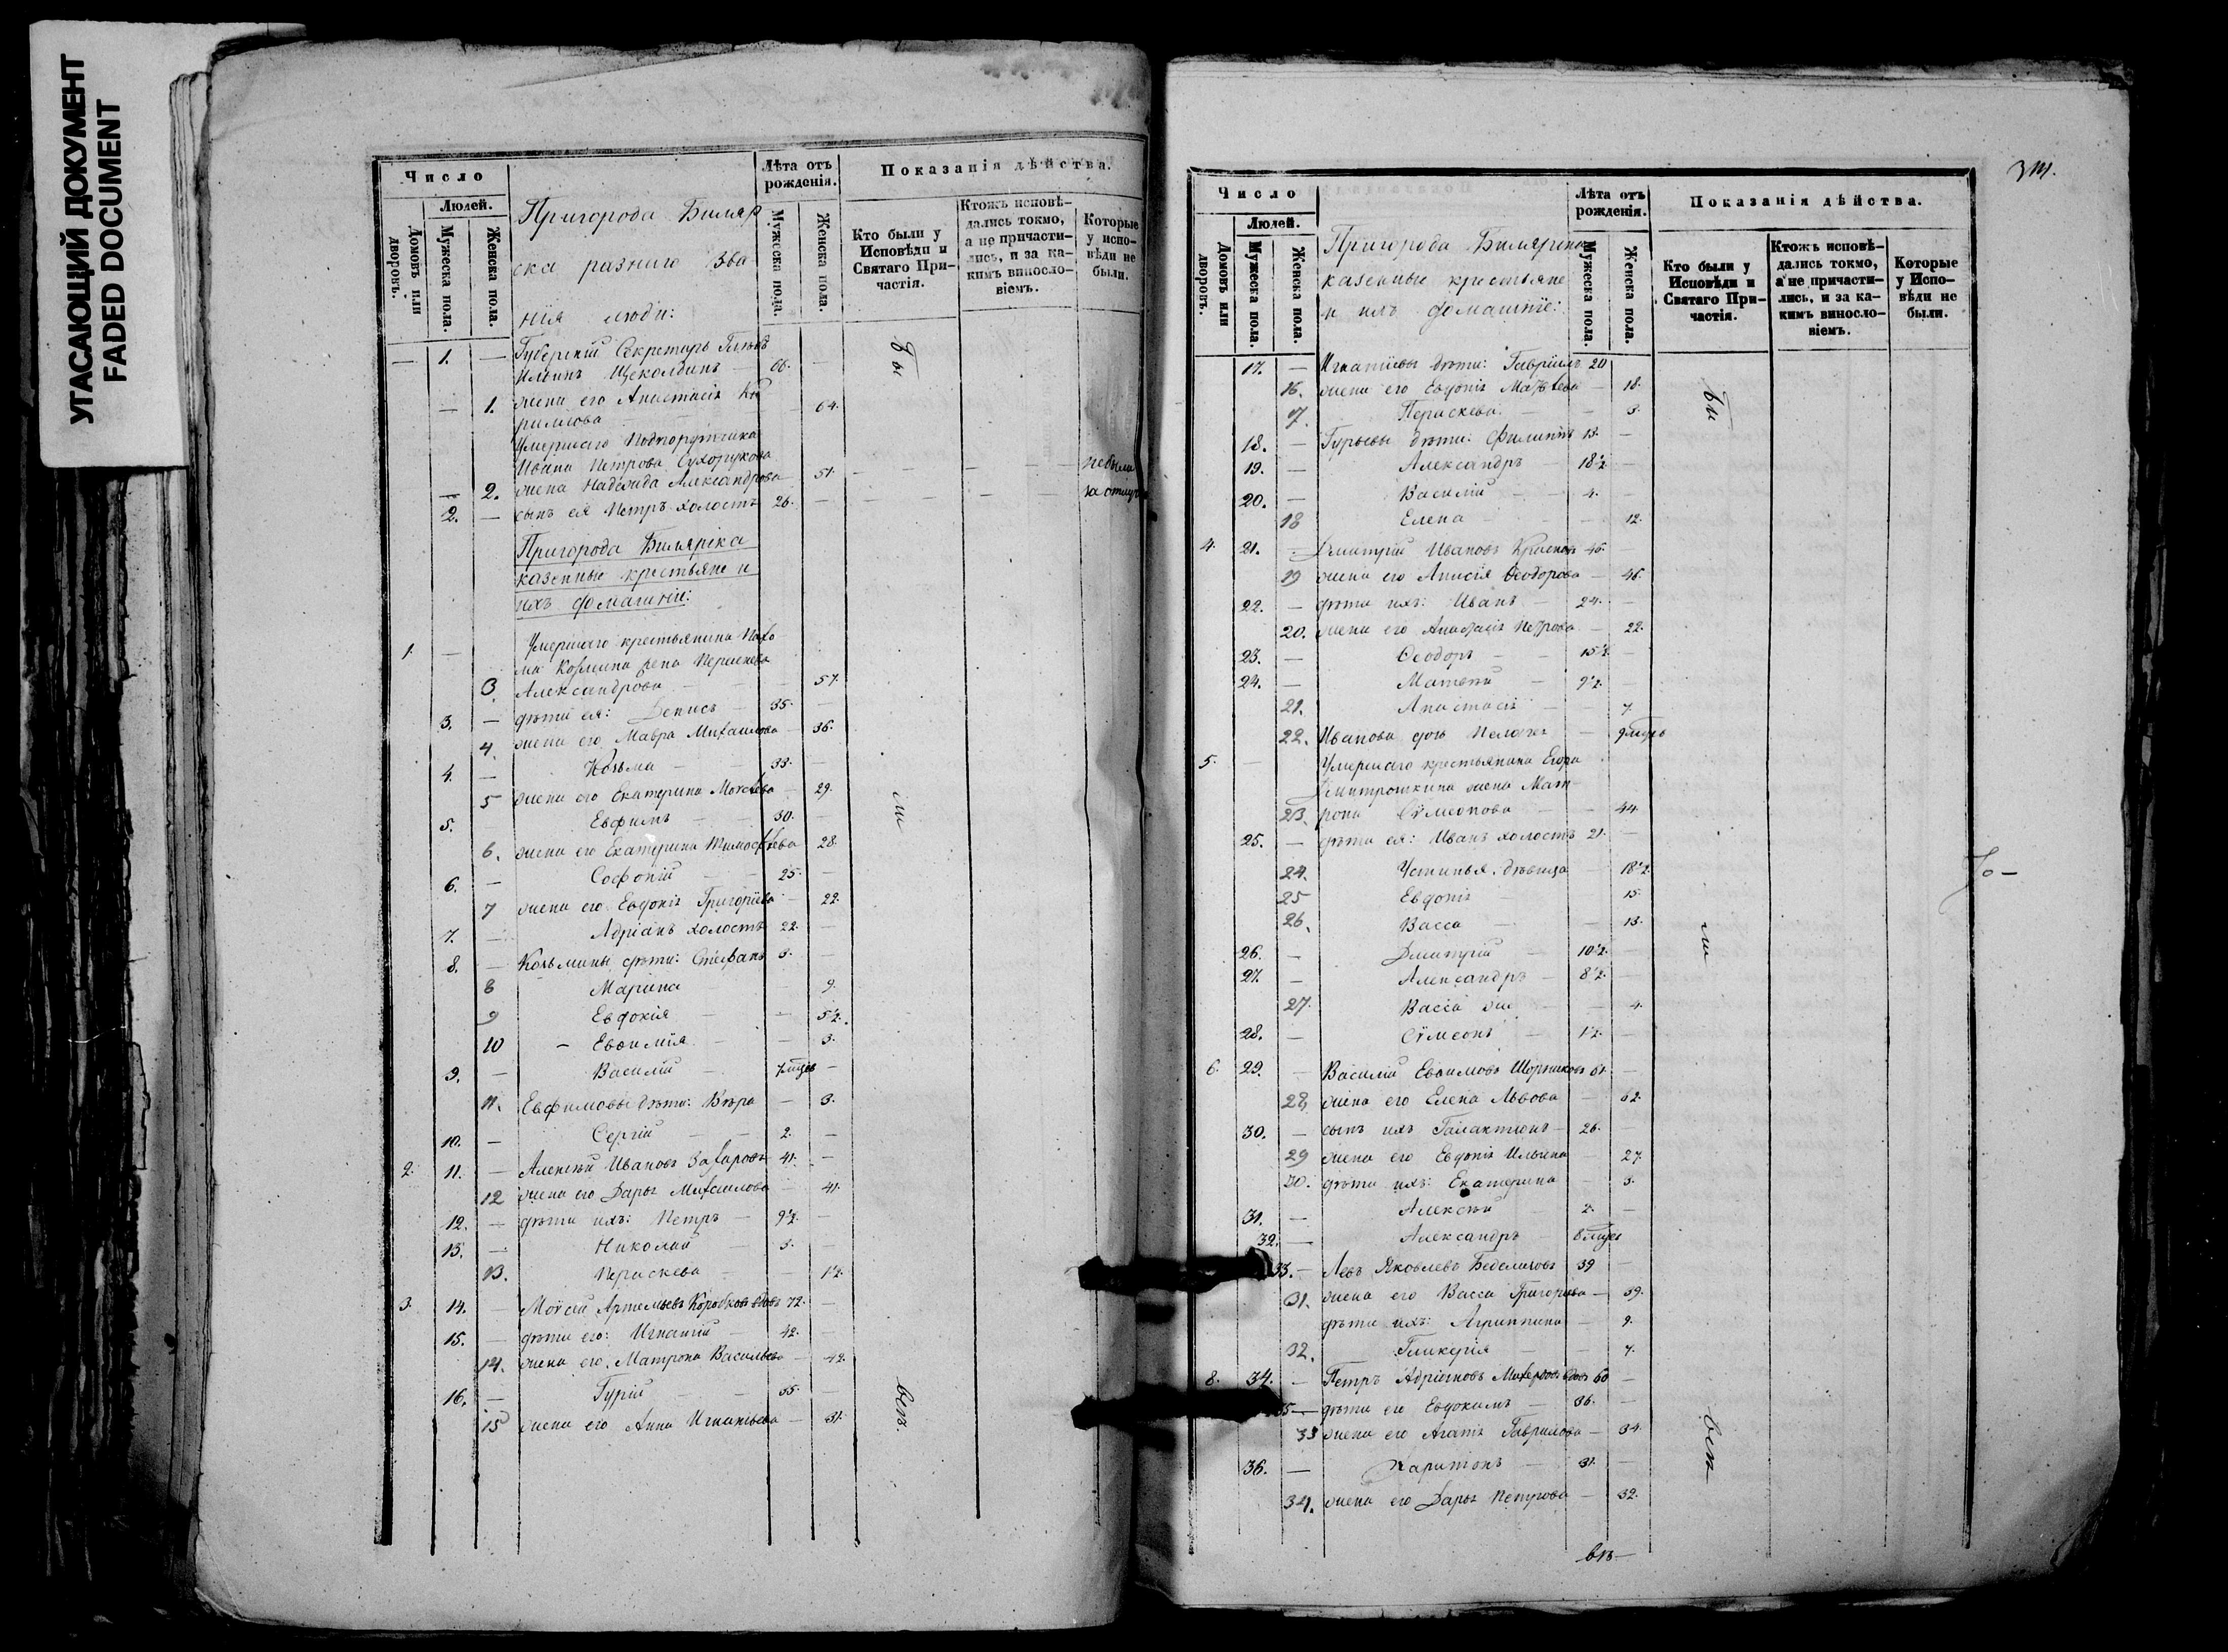 УГАСАЮЩИЙ ДОКУМЕНТ
FADED DOCUMENT
Число
Людей.
Домовъ или дворовъ.
Мужеска пола.
Женска пола.
Пригорода Биляр
ска разнаго зва
нія люди:
Лѣта отъ рожденія.
Мужеска пола.
Женска пола.
Показанія дѣйства.
Кто были у Исповѣди и Святаго Причастія.
Ктожъ исповѣдались токмо, а не причастились, и за какимъ винословіемъ.
Которые у исповѣди не были.
— 1. — Губерскій Секретарь
Ильинъ Щеколдинъ — 66.
— 1. жена его Анастасія Ки
рилова — 64.
Умершаго Подпорутчика
Ивана Петрова Сухорукова
— 2. жена Надежда Александрова 51. — — — — не были
2. — сынъ ея Петръ холостъ 26. — — — — — за отлуч
Пригорода Билярска
казенные крестьяне и
ихъ домашніе:
1. — Умершаго крестьянина Пахо
ма Козмина жена Перискева
3. Александрова — — 57.
3. — дѣти ея: Денисъ — 35. —
4. жена его Мавра Михаилова — 36.
4. — Козьма — — 33. —
5 жена его Екатерина Моисѣева — 29.
5. — Евфимъ — — 30. —
6. жена его Екатерина Тимофѣева 28.
6. — Софоній — — 25. —
7 жена его Евдокія Григоріева — 22.
7. — Адріанъ холостъ 22. —
8. — Козьмины дѣти: Стефанъ 3. —
8 Марина — 9.
9 Евдокія — — 5½.
10 — Евѳимія — — 3.
9. — Василій — 7 мцсв —
11. Евфимовы дѣти: Вѣра — 3.
10. — Сергій — — 2. —
2. 11. — Алексѣй Ивановъ Захаровъ 41. —
12 жена его Дарья Михаилова — 41.
12. — дѣти ихъ: Петръ — 9½. —
13. — Николай — 3. —
13. Перискева — — 1½.
3. 14. — Моѵсей Артемьевъ Коробковъ вдовъ 72. —
15. — дѣти его: Игнатій — 42. —
14. жена его Матрона Васильева — 42.
16. — Гурій — — 35. —
15 жена его Анна Игнатьева — 31.
бы
ли
всѣ.
Число
Людей.
Домовъ или дворовъ.
Мужеска пола.
Женска пола.
Пригорода Билярска
казенные крестьяне
и ихъ домашніе:
Лѣта отъ рожденія.
Мужеска пола.
Женска пола.
Показанія дѣйства.
Кто были у Исповѣди и Святаго Причастія.
Ктожъ исповѣдались токмо, а не причастились, и за какимъ винословіемъ.
Которые у Исповѣди не были.
17. — Игнатіевы дѣти: Гавріилъ 20
16. жена его Евдокія Матѳѣева — 18.
17. Перискева — — 3.
18. — Гурьевы дѣти: Филиппъ 13. —
19. — Александръ — 18½ —
20. — Василій — 4. —
18 Елена — — 12.
4. 21. — Дмитрій Ивановъ Красновъ 45. —
19 жена его Анисія Ѳеодорова — 46.
22. — дѣти ихъ: Иванъ — 24. —
20. жена его Анастасія Петрова — 22.
23. — Ѳеодоръ — — 15½. —
24. — Матвей — 9½. —
21. Анастасія — — 7.
22. Иванова дочь Пелагея — 9
5. — Умершаго крестьянина Егора
Дмитрошкина жена Мат
23. рона Сѵмеонова — 44.
25. — дѣти ея: Иванъ холостъ 21. —
24. Устинья дѣвица — 18½.
25 Евдокія — — 15.
26. Васса — — 13.
26. — Дмитрій — 10½. —
27. — Александръ — 8½. —
27. Васса — — 4.
28. — Сѵмеонъ — 1½. —
6. 29. — Василій Евѳимовъ Шорниковъ 61. —
28. жена его Елена Львова — 62.
30. — сынъ ихъ Галактіонъ — 26. —
29 жена его Евдокія Ильина — 27.
30. дѣти ихъ: Екатерина — 3.
31. — Алексѣй — 2. —
32. — Александръ — 8
33. — Левъ Яковлевъ 39 —
31. жена его Васса Григорьева — 39.
дѣти ихъ: Агриппина — 9.
32. Гликерія — — 7.
8. 34. — Петръ Адріановъ вдовъ 60 —
35 — дѣти его Евдокимъ — 36. —
33 жена его Агаѳія Гаврилова — 34.
36. — Харитонъ — 31. —
34. жена его Дарья Петрова — 32.
бы
ли
всѣ